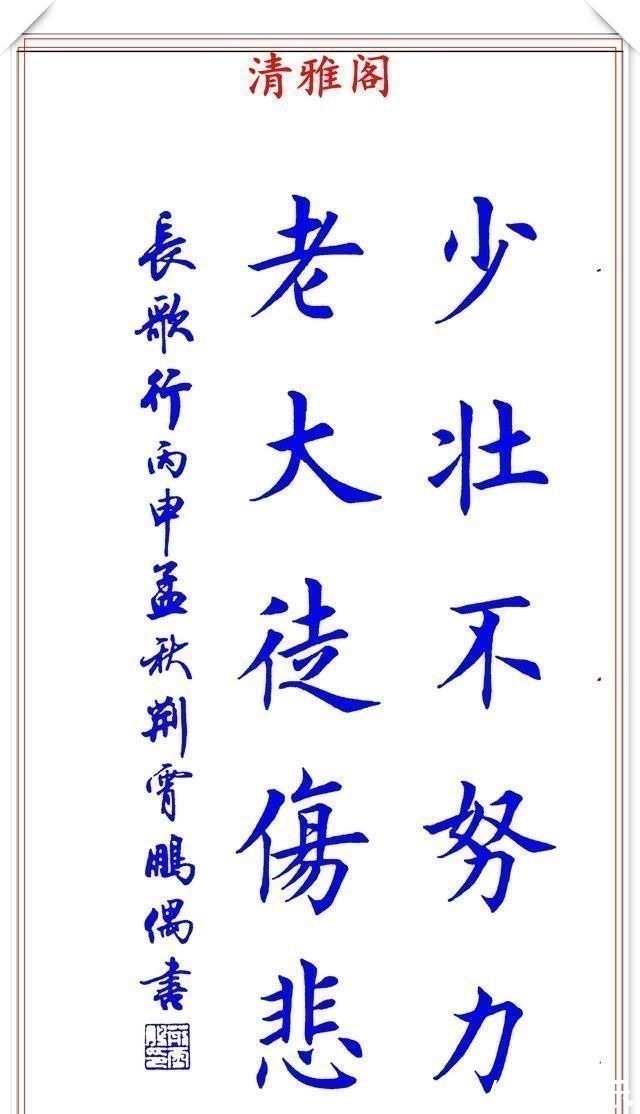 清雅阁
少壮不努力
老大徒傷悲
長歌行丙申孟秋荆霄鵬偶書